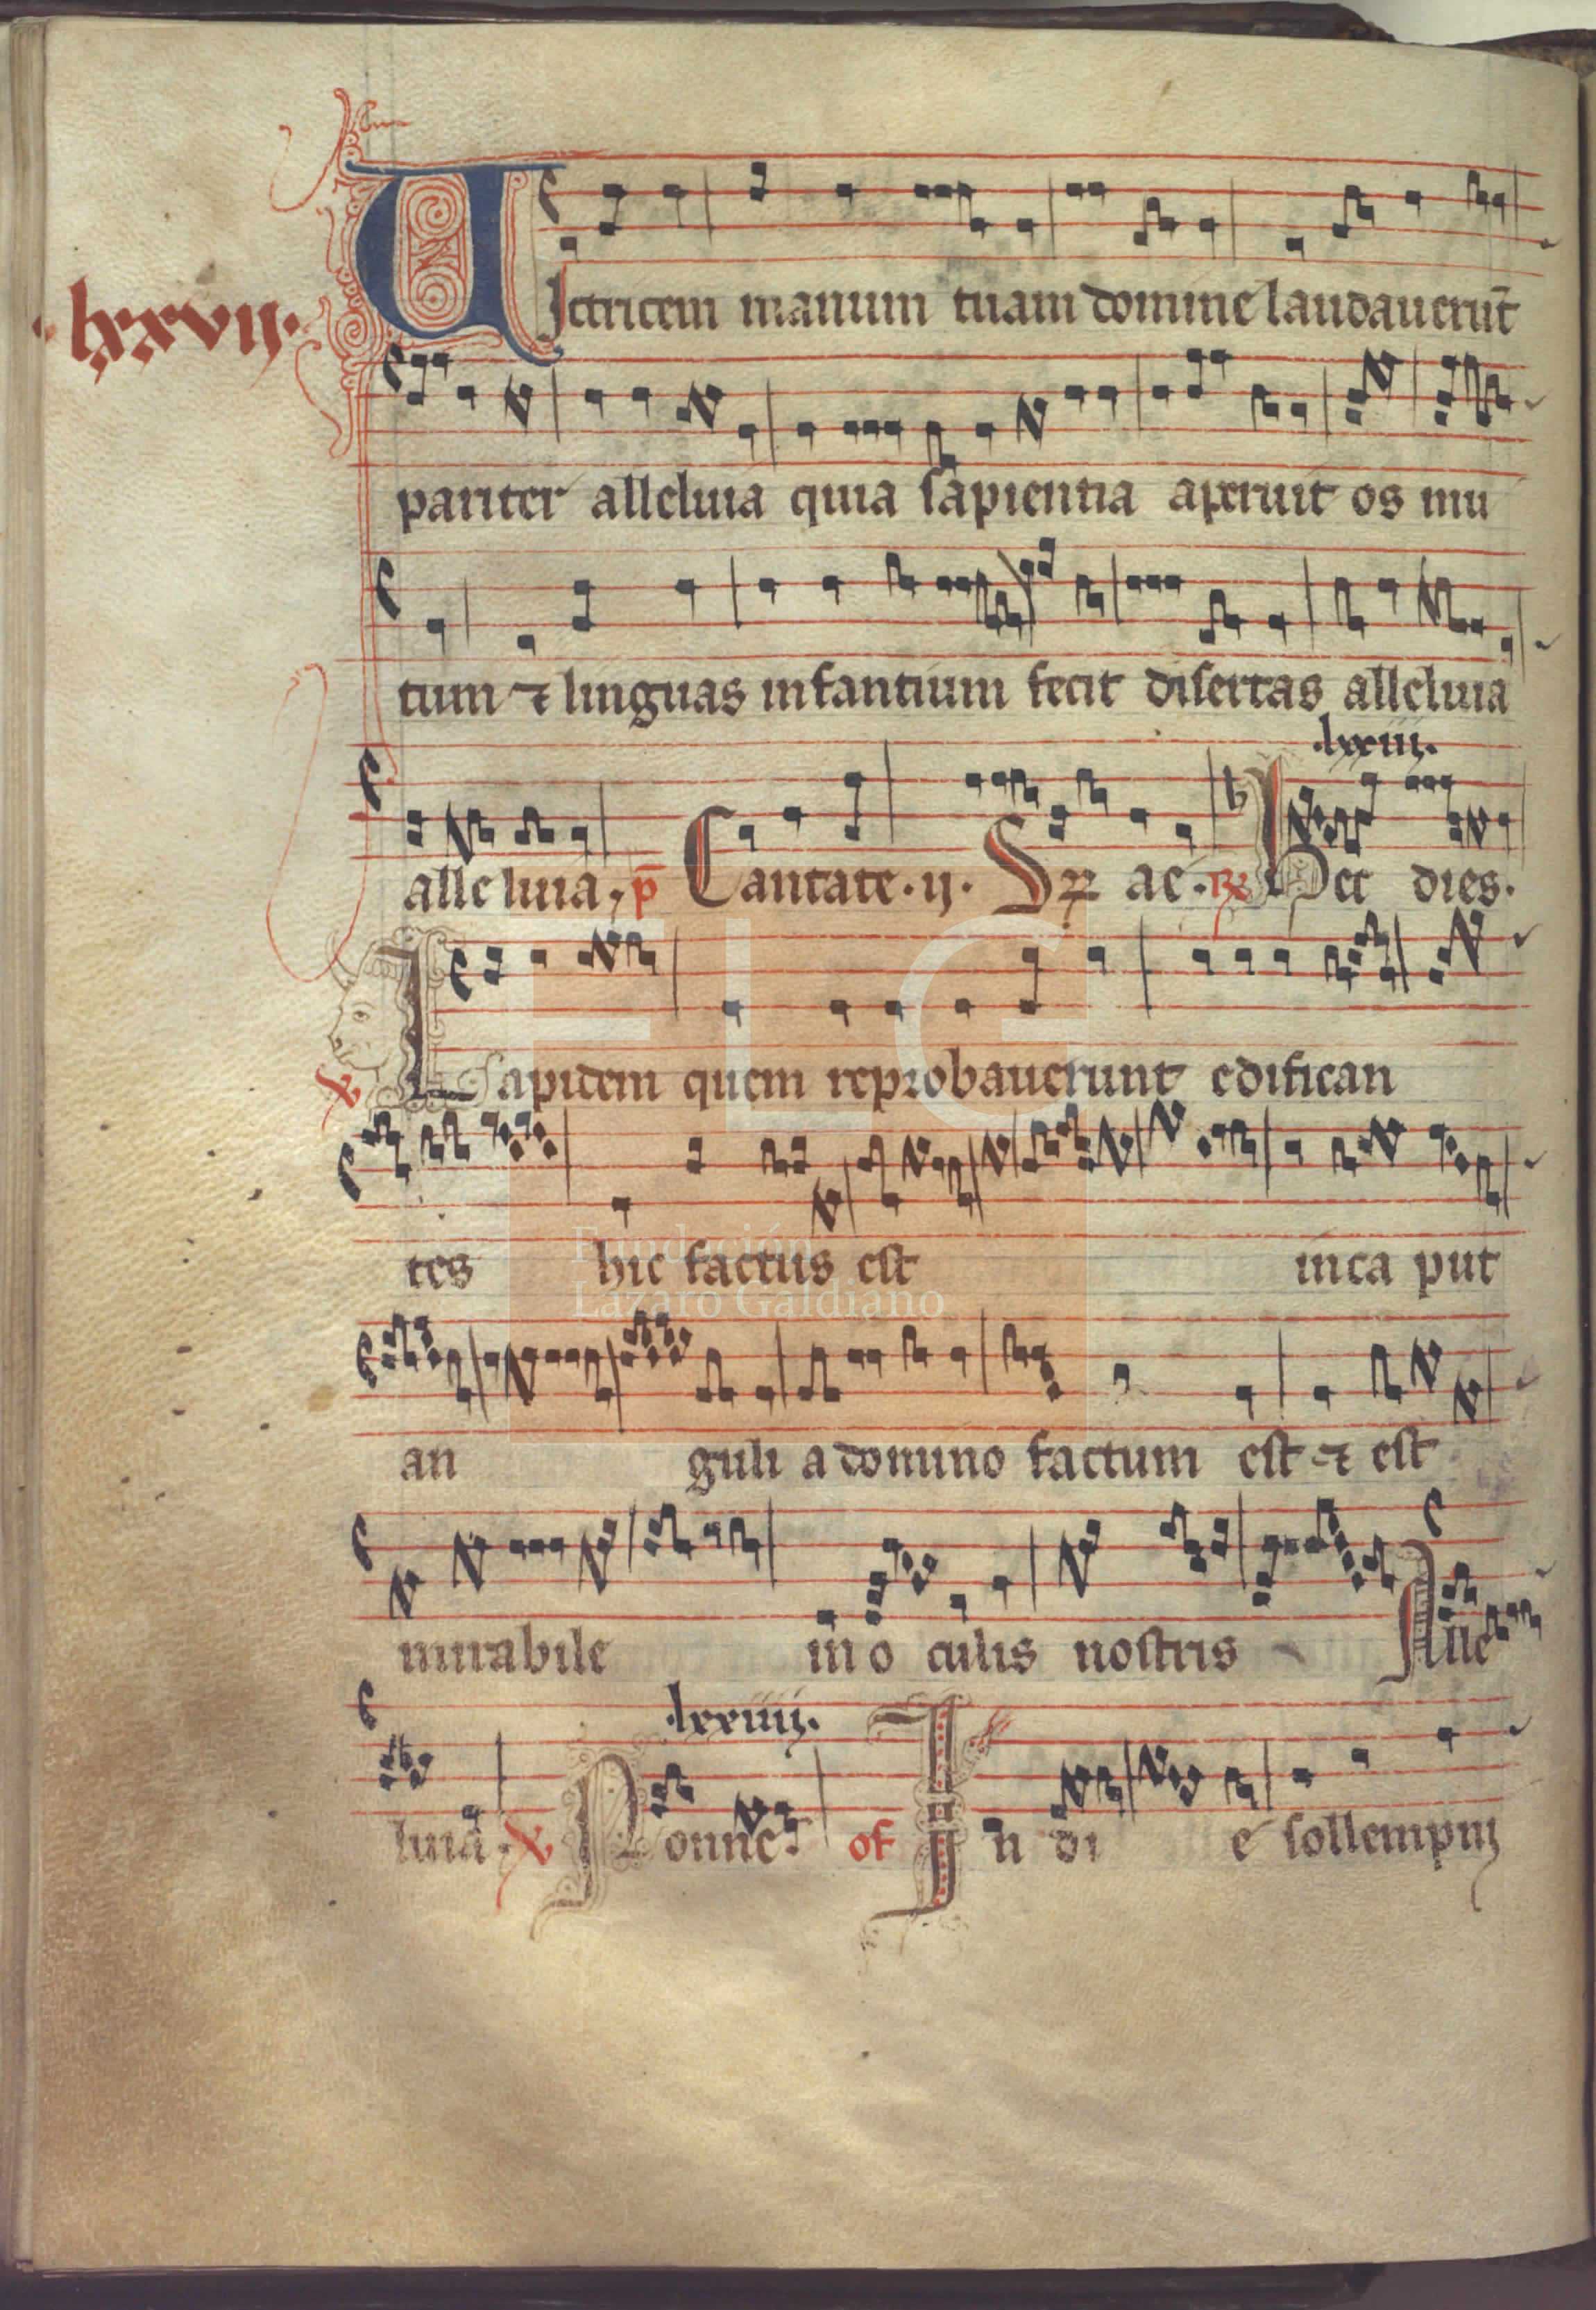 ·lxxvij·
VIctricem manum tuam domine laudauerūt
pariter alleluia quia sapientia aperuit os mu
tum ⁊ linguas infantium fecit disertas alleluia
·lxxiii·
alle luia, p̄ Cantate·ij· Sꝝ ae·℟ Hec dies·
℣ Lapidem quem reprobauerunt edifican
tes hic factus est inca put
an guli a domino factum est ⁊ est
mirabile in o culis nostris Alle
·lxxiiij·
luia·℣ Nonne· of In di e sollempni
FLG
Fundación
Lázaro Galdiano